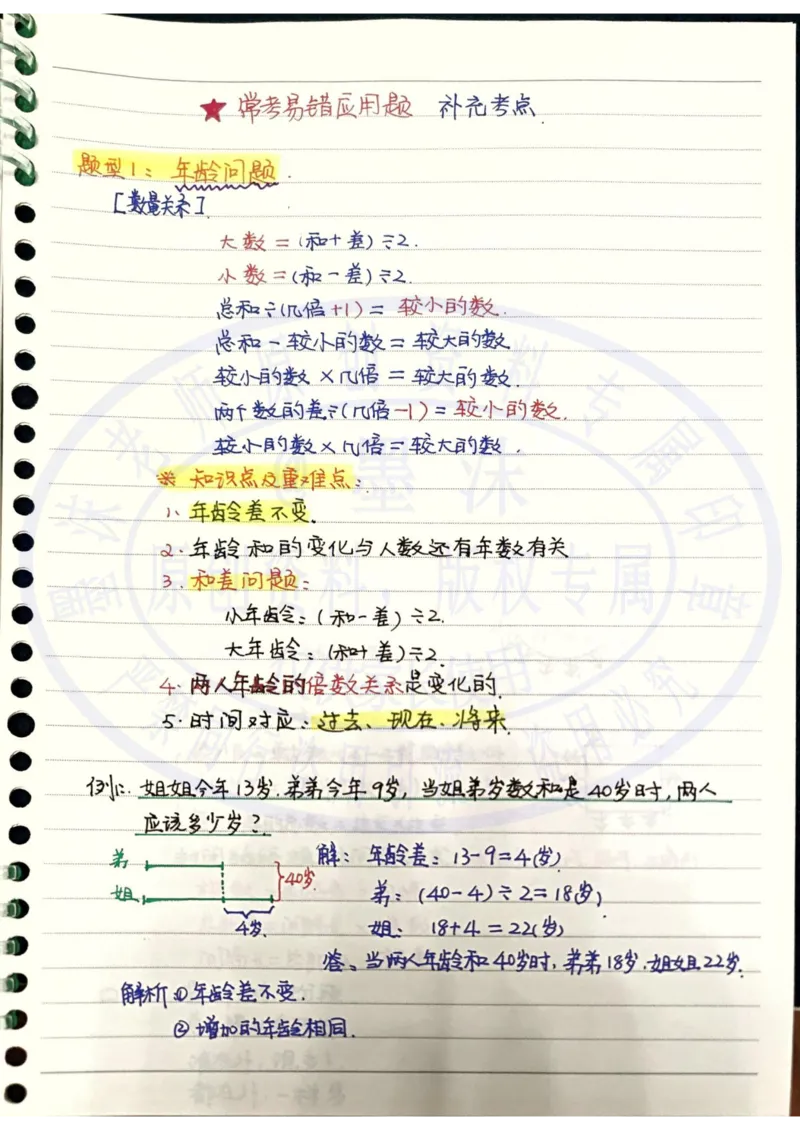 ★ 常考易错应用题 补充考点.
题型1: 年龄问题.
[数量关系].
大数=(和+差)÷2.
小数=(和-差)÷2.
总和÷(几倍+1)=较小的数.
总和-较小的数=较大的数
较小的数×几倍=较大的数.
两个数的差÷(几倍-1)=较小的数.
较小的数×几倍=较大的数.
※ 知识点及重难点:
1. 年龄差不变.
2. 年龄和的变化与人数还有年数有关
3. 和差问题:
小年龄:(和-差)÷2.
大年龄:(和+差)÷2.
4. 两人年龄的倍数关系是变化的.
5. 时间对应:过去、现在、将来.
例1: 姐姐今年13岁.弟弟今年9岁,当姐弟岁数和是40岁时,两人
应该多少岁?
弟
姐
40岁.
4岁.
解: 年龄差:13-9=4(岁)
弟:(40-4)÷2=18(岁)
姐: 18+4=22(岁)
答、当两人年龄和40岁时,弟弟18岁.姐姐22岁.
解析①年龄差不变.
②增加的年龄相同.
墨沫
原创资料,版权专属